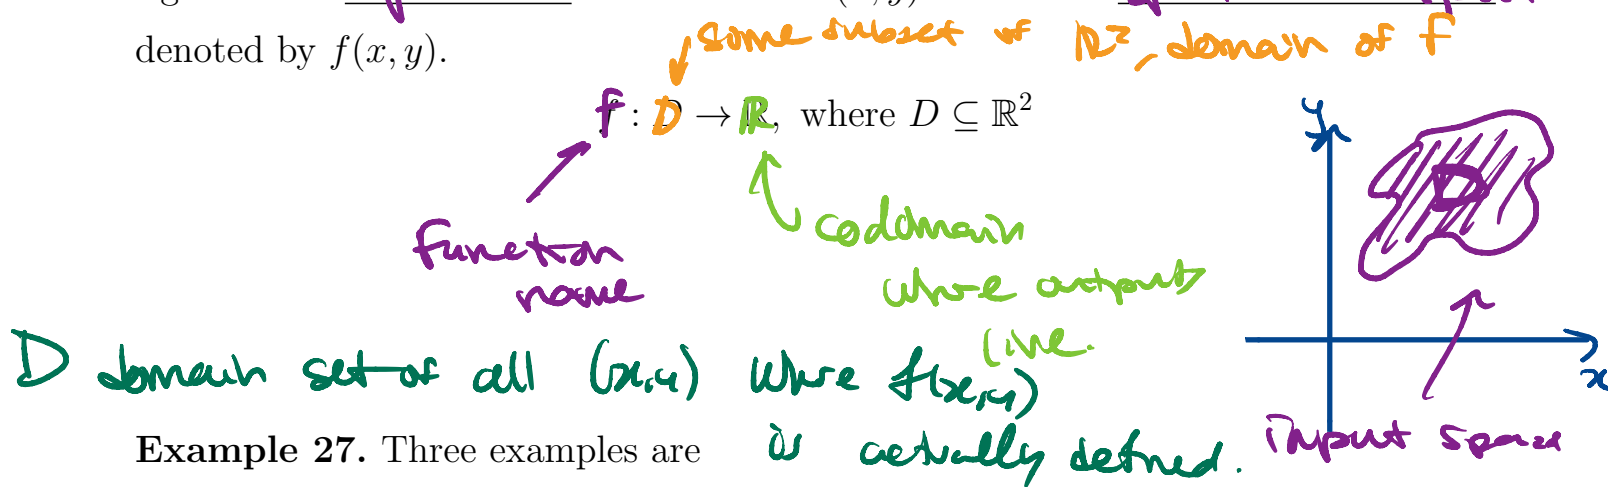 denoted by f(x, y).
some subset of ℝ², domain of f
f : D → ℝ, where D ⊆ ℝ²
y
D
function
name
codomain
where outputs
live.
D domain set of all (x,y) where f(x,y)
is actually defined.
x
input space
Example 27. Three examples are